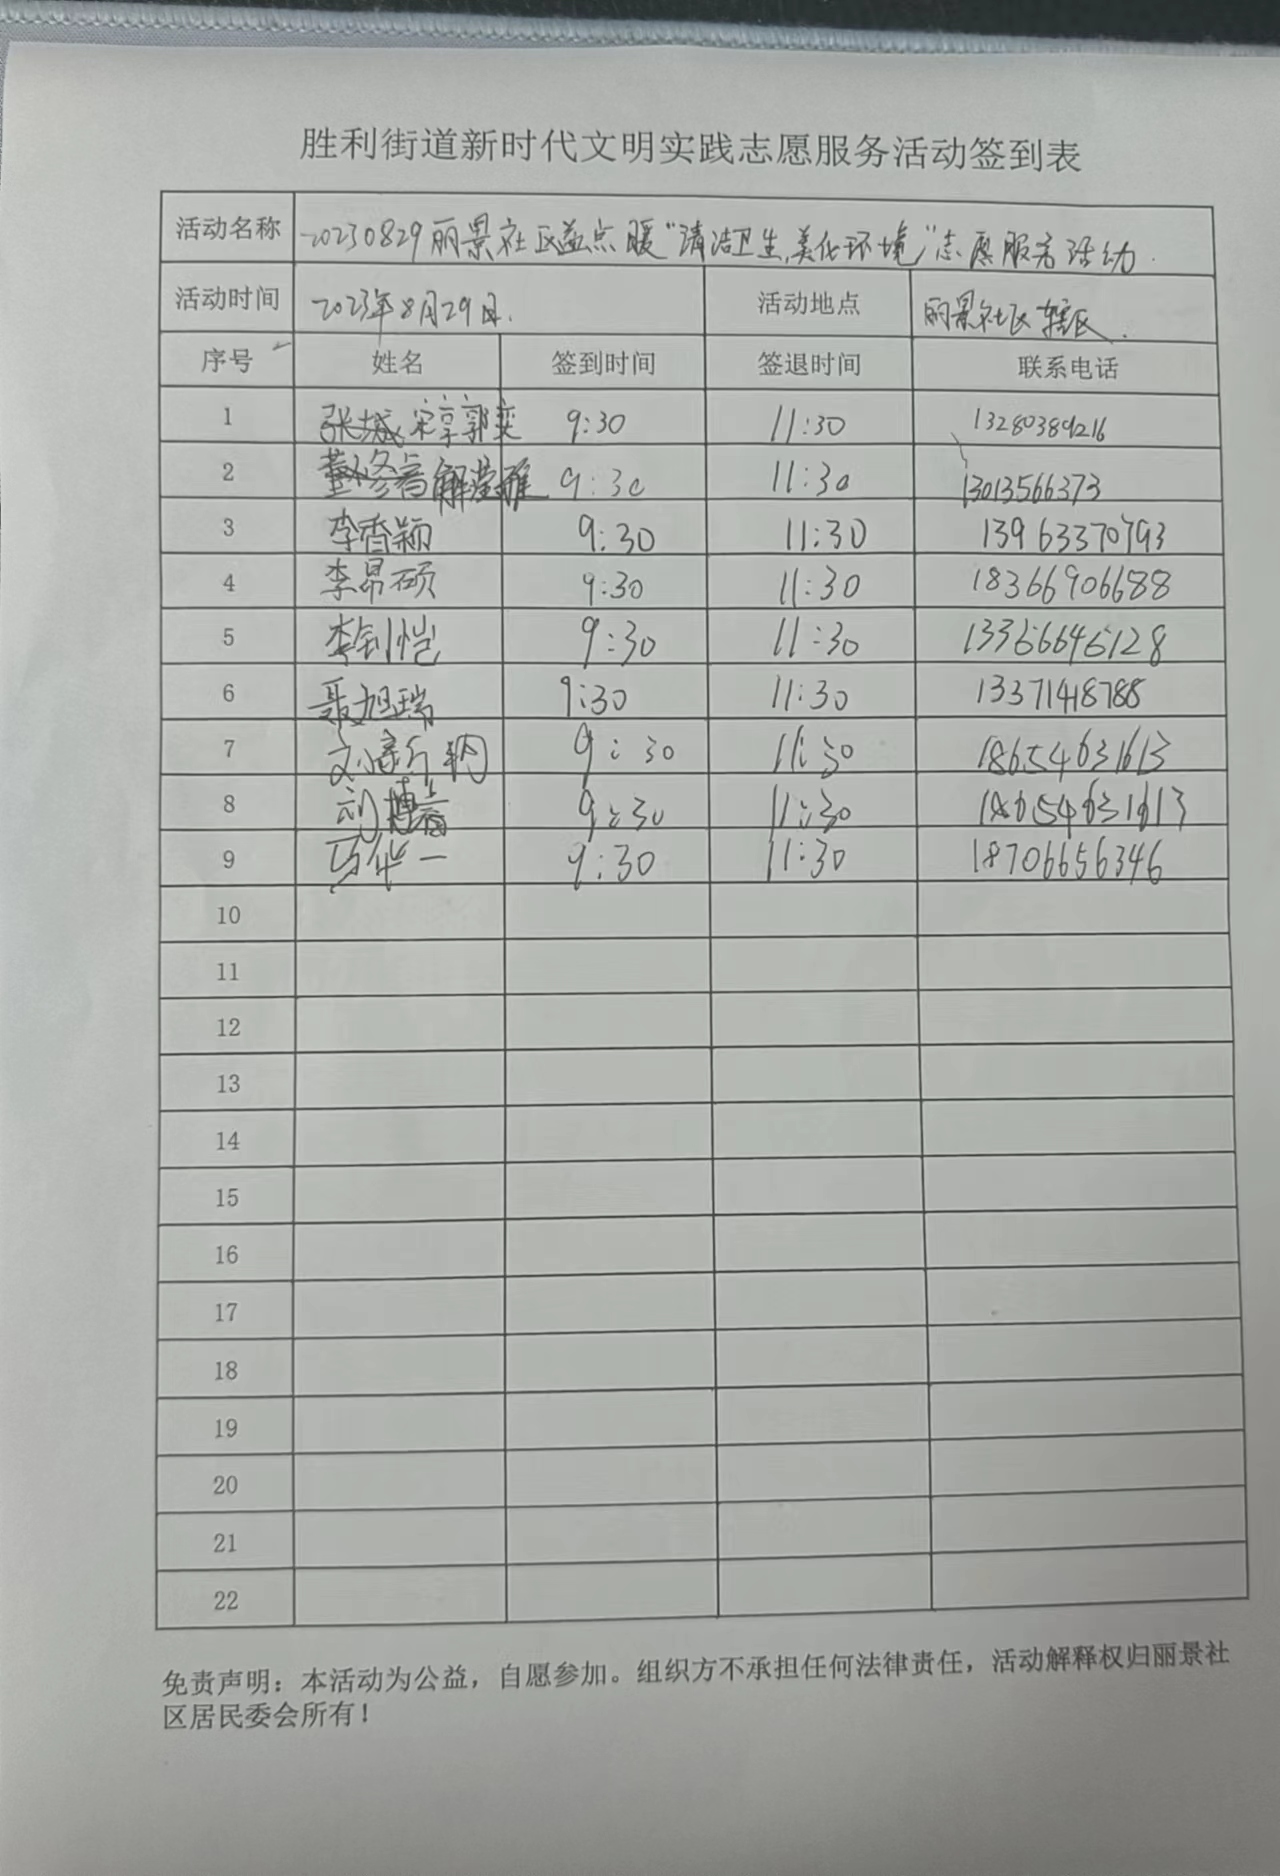 胜利街道新时代文明实践志愿服务活动签到表
活动名称 20230829丽景社区益点暖“清洁卫生,美化环境”志愿服务活动.
活动时间 2023年8月29日. 活动地点 丽景社区辖区.
序号 姓名 签到时间 签退时间 联系电话
1 张城 宋享郭奕 9:30 11:30 13280389216
2 董修睿 解莹雅 9:30 11:30 13013566373
3 李香颖 9:30 11:30 13963370793
4 李昂硕 9:30 11:30 18366906688
5 李钊恺 9:30 11:30 13356645128
6 聂旭瑞 9:30 11:30 13371418788
7 9:30 11:30 18654631613
8 9:30 11:30 18654631613
9 马华一 9:30 11:30 18706656346
10
11
12
13
14
15
16
17
18
19
20
21
22
免责声明：本活动为公益，自愿参加。组织方不承担任何法律责任，活动解释权归丽景社
区居民委会所有！